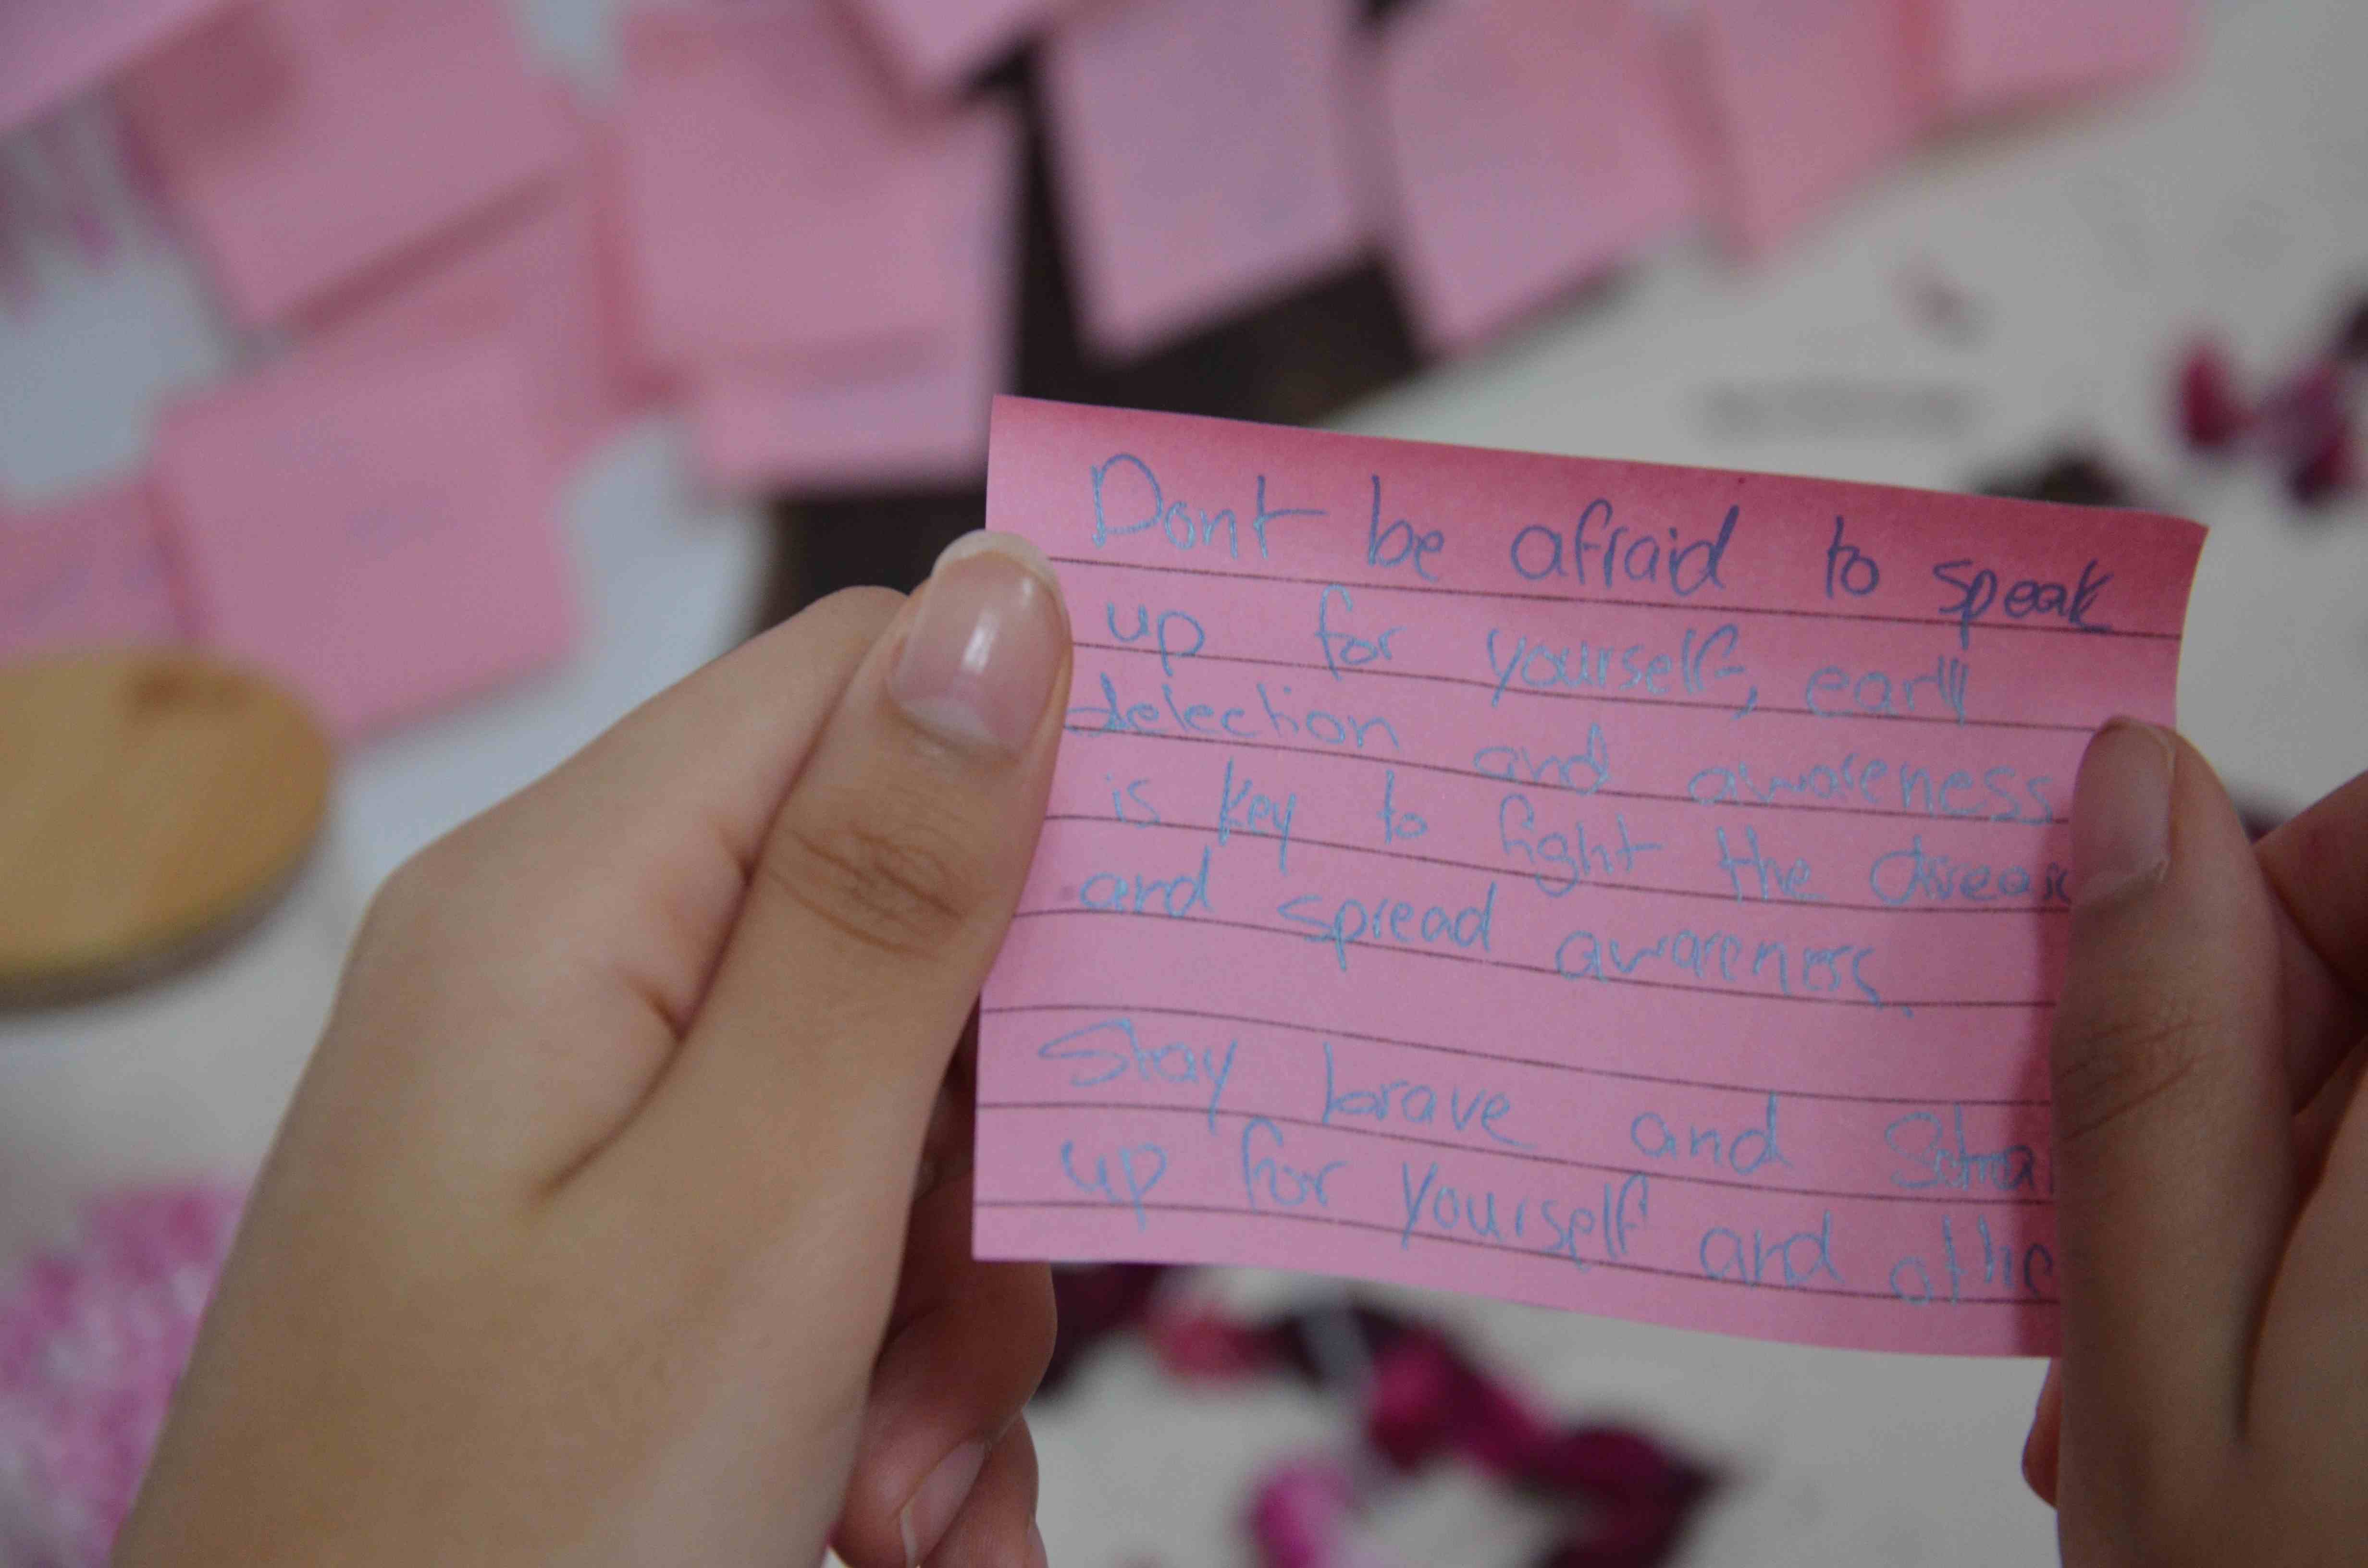 Dont be afraid to speak
up for yourself, early
detection and awareness
is key to fight the diseas
and spread awareness.
Stay brave and
up for yourself and othe